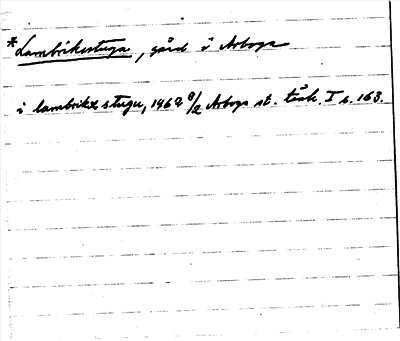 *Lambrikestuga, gård i Arboga
i lambrika stugu, 1462 8/2 Arboga st. tänk. I s. 163.